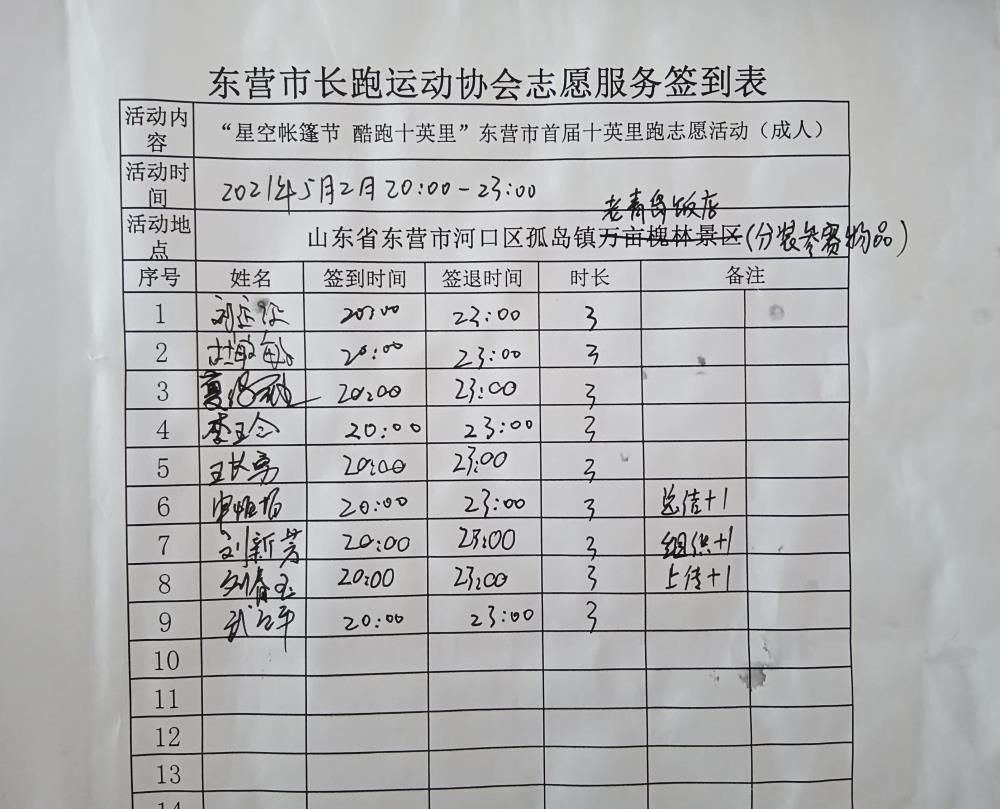 东营市长跑运动协会志愿服务签到表
活动内容 “星空帐篷节 酷跑十英里”东营市首届十英里跑志愿活动（成人）
活动时间 2021年5月2月 20:00-23:00
老青岛饭店
活动地点 山东省东营市河口区孤岛镇万亩槐林景区(分装参赛物品)
序号 姓名 签到时间 签退时间 时长 备注
1 20:00 23:00 3
2 20:00 23:00 3
3 20:00 23:00 3
4 李玉念 20:00 23:00 3
5 王长亮 20:00 23:00 3
6 20:00 23:00 3 总结+1
7 刘新芳 20:00 23:00 3 组织+1
8 刘春玉 20:00 23:00 3 上传+1
9 20:00 23:00 3
10
11
12
13
14